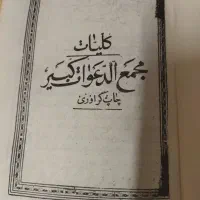 کلیات
مجمع الدعوات کبیر
چاپ گراوری